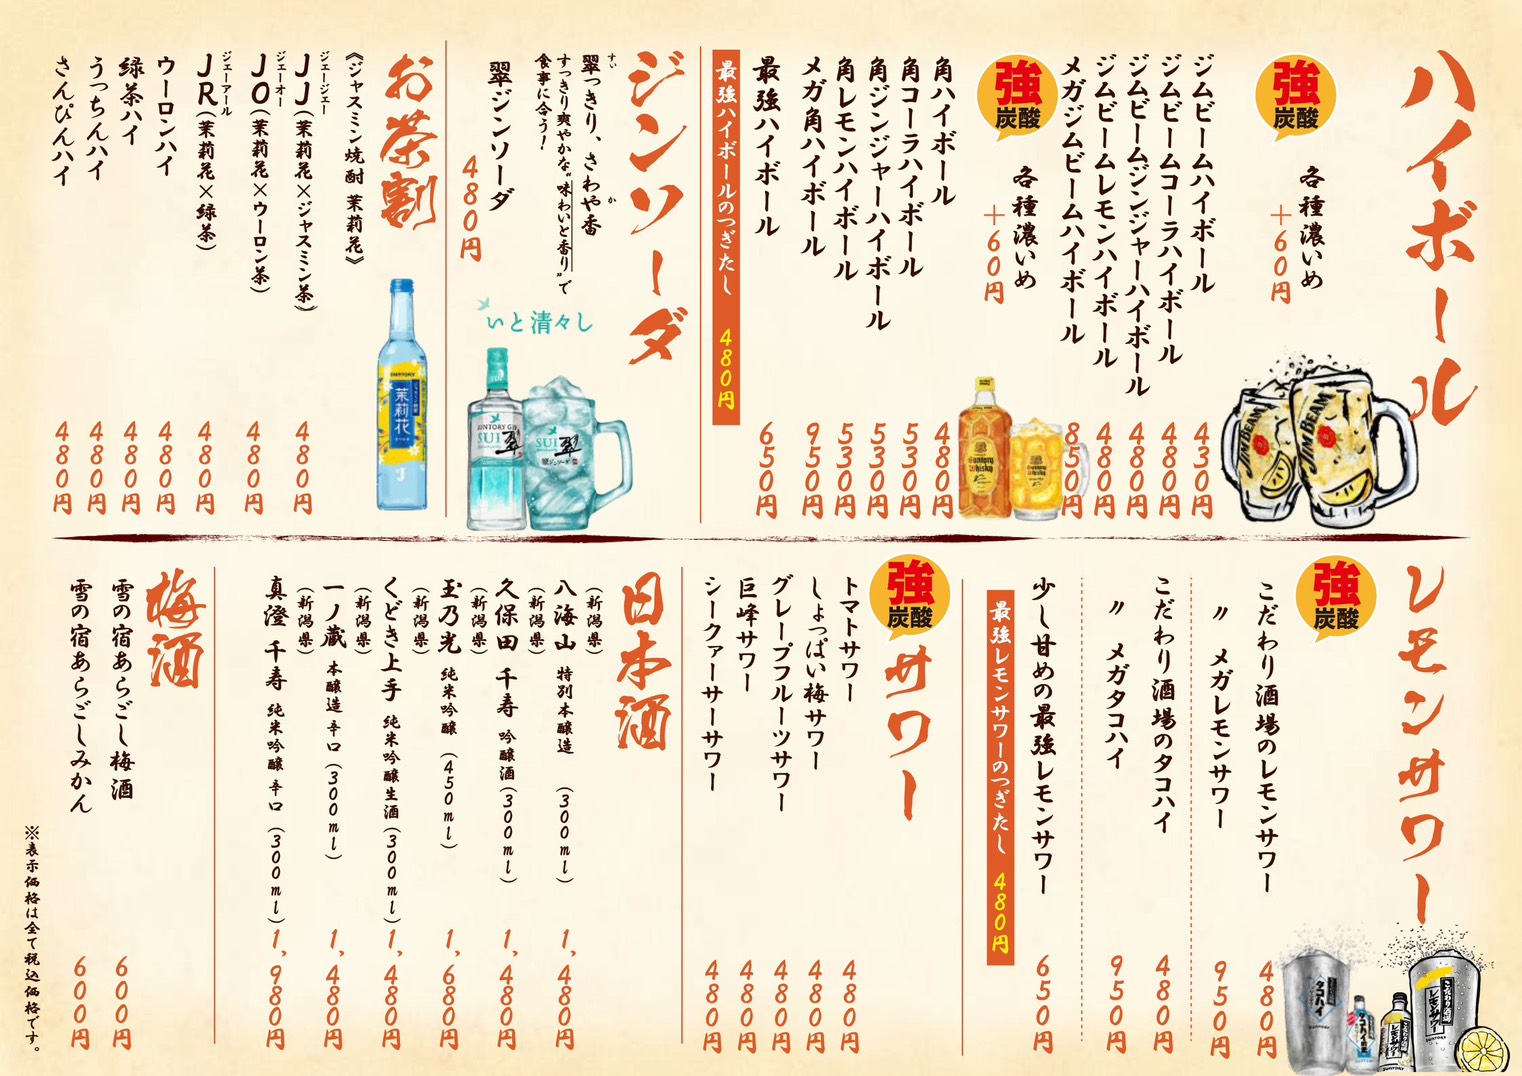 ハイボール
強
炭酸
各種濃いめ
+60円
ジムビームハイボール 430円
ジムビームコーラハイボール 480円
ジムビームジンジャーハイボール 480円
ジムビームレモンハイボール 480円
メガジムビームハイボール 850円
JIM BEAM
JIM BEAM
強
炭酸
各種濃いめ
+60円
角ハイボール 480円
角コーラハイボール 530円
角ジンジャーハイボール 530円
角レモンハイボール 530円
メガ角ハイボール 950円
最強ハイボール 650円
最強ハイボールのつぎたし 480円
Suntory
Whisky
ジンソーダ
翠っきり、さわや香
すい
か
すっきり爽やかな“味わいと香り”で
食事に合う！
翠ジンソーダ
480円
いと清々し
SUNTORY GIN
SUI
翠
SUI
翠
翠ジンソーダ
お茶割
《ジャスミン焼酎 茉莉花》
ジェージェー
JJ（茉莉花×ジャスミン茶） 480円
ジェーオー
JO（茉莉花×ウーロン茶） 480円
ジェーアール
JR（茉莉花×緑茶） 480円
ウーロンハイ 480円
緑茶ハイ 480円
うっちんハイ 480円
さんぴんハイ 480円
SUNTORY
茉莉花
レモンサワー
強
炭酸
こだわり酒場のレモンサワー 480円
〃 メガレモンサワー 950円
こだわり酒場のタコハイ 480円
〃 メガタコハイ 950円
少し甘めの最強レモンサワー 650円
最強レモンサワーのつぎたし 480円
タコハイ
こだわり酒場の
レモンサワー
SUNTORY
強
炭酸
サワー
トマトサワー 480円
しょっぱい梅サワー 480円
グレープフルーツサワー 480円
巨峰サワー 480円
シークァーサーサワー 480円
日本酒
（新潟県）
八海山 特別本醸造 （300ml） 1,480円
（新潟県）
久保田 千寿 吟醸酒（300ml） 1,480円
（新潟県）
玉乃光 純米吟醸 （450ml） 1,680円
（新潟県）
くどき上手 純米吟醸生酒（300ml） 1,480円
（新潟県）
一ノ蔵 本醸造 辛口（300ml） 1,480円
（新潟県）
真澄 千寿 純米吟醸 辛口（300ml） 1,980円
梅酒
雪の宿あらごし梅酒 600円
雪の宿あらごしみかん 600円
※表示価格は全て税込価格です。